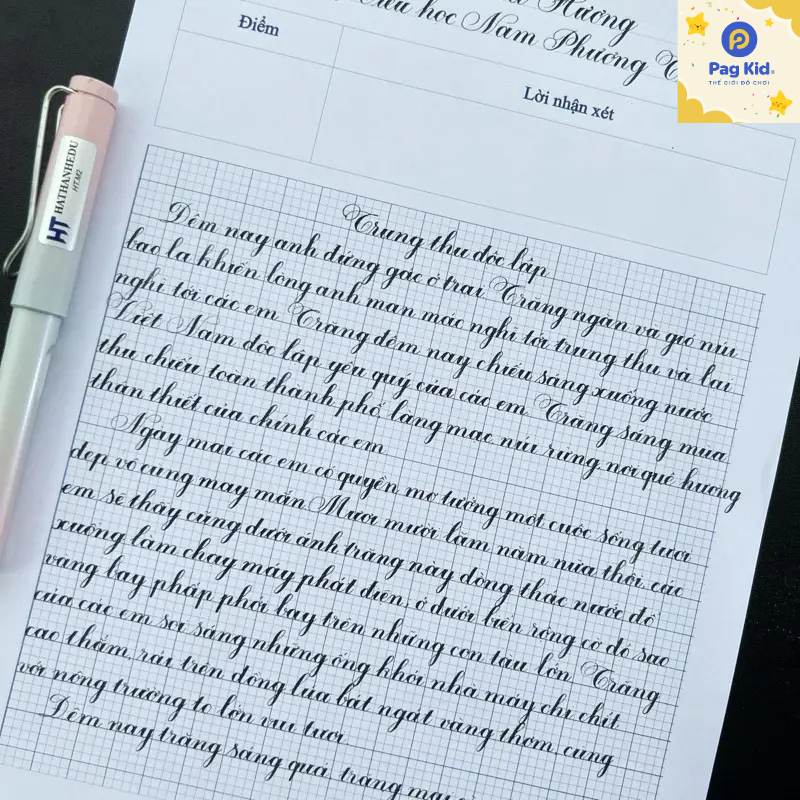 Hương
học Nam Phương
Điểm
Lời nhận xét
Pag Kid
THẾ GIỚI ĐỒ CHƠI
HT HATHANHEDU
HT.M2
Trung thu độc lập
Đêm nay anh đứng gác ở trại. Trăng ngàn và gió núi
bao la khiến lòng anh man mác nghĩ tới trung thu và lại
nghĩ tới các em. Trăng đêm nay chiếu sáng xuống nước
Việt Nam độc lập yêu quý của các em. Trăng sáng mùa
thu chiếu toàn thành phố, làng mạc, núi rừng nơi quê hương
thân thiết của chính các em
Ngày mai các em có quyền mơ tưởng một cuộc sống tươi
đẹp vô cùng may mắn. Mươi mười lăm năm nữa thôi, các
em sẽ thấy cũng dưới ánh trăng này dòng thác nước đổ
xuống làm chạy máy phát điện, ở dưới biển rộng cờ đỏ sao
vàng bay phấp phới bay trên những con tàu lớn. Trăng
của các em soi sáng những ống khói nhà máy chi chít
cao thẳm, rải trên đồng lúa bát ngát vàng thơm, cùng
với nông trường to lớn vui tươi
Đêm nay trăng sáng quá, trăng mai